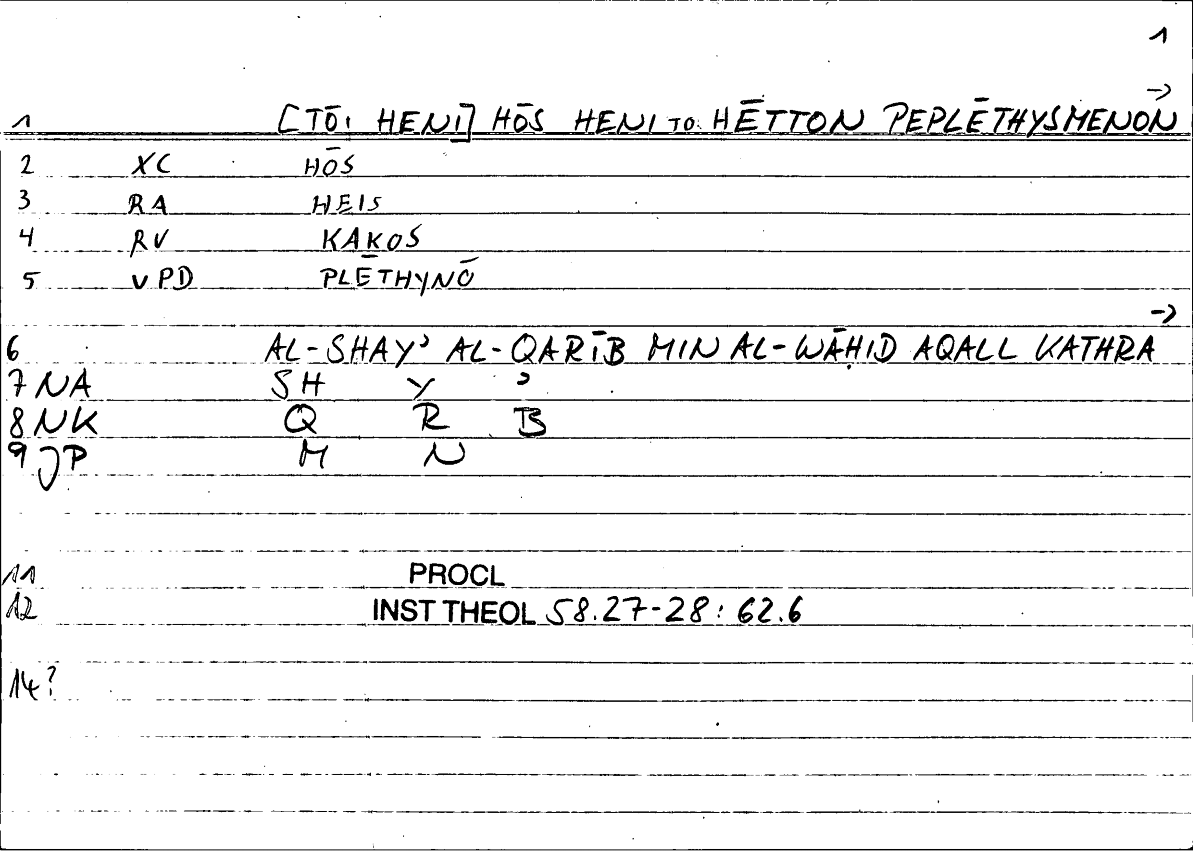 1
→
1 [TŌI HENI] HŌS HENI TO HĒTTON PEPLĒTHYSMENON
2 XC HŌS
3 RA HEIS
4 RV KAKOS
5 VPD PLĒTHYNŌ
→
6 AL-SHAYʾ AL-QARĪB MIN AL-WĀḤID AQALL KATHRA
7 NA SH Y ʾ
8 NK Q R B
9 JP M N
11 PROCL
12 INST THEOL 58.27-28: 62.6
14?